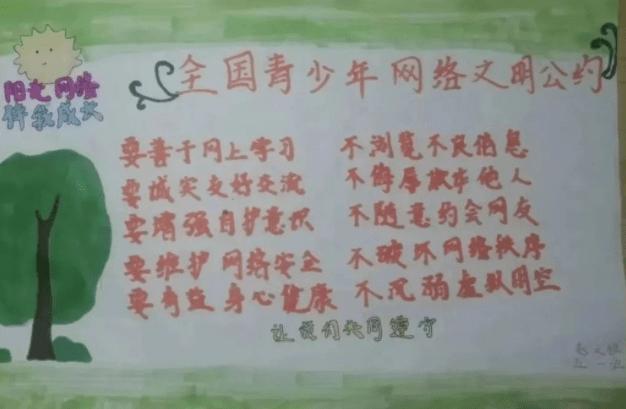 全国青少年网络文明公约
阳光网络
伴我成长
要善于网上学习 不浏览不良信息
要诚实友好交流 不侮辱欺诈他人
要增强自护意识 不随意约会网友
要维护网络安全 不破坏网络秩序
要有益身心健康 不沉溺虚拟时空
让我们共同遵守